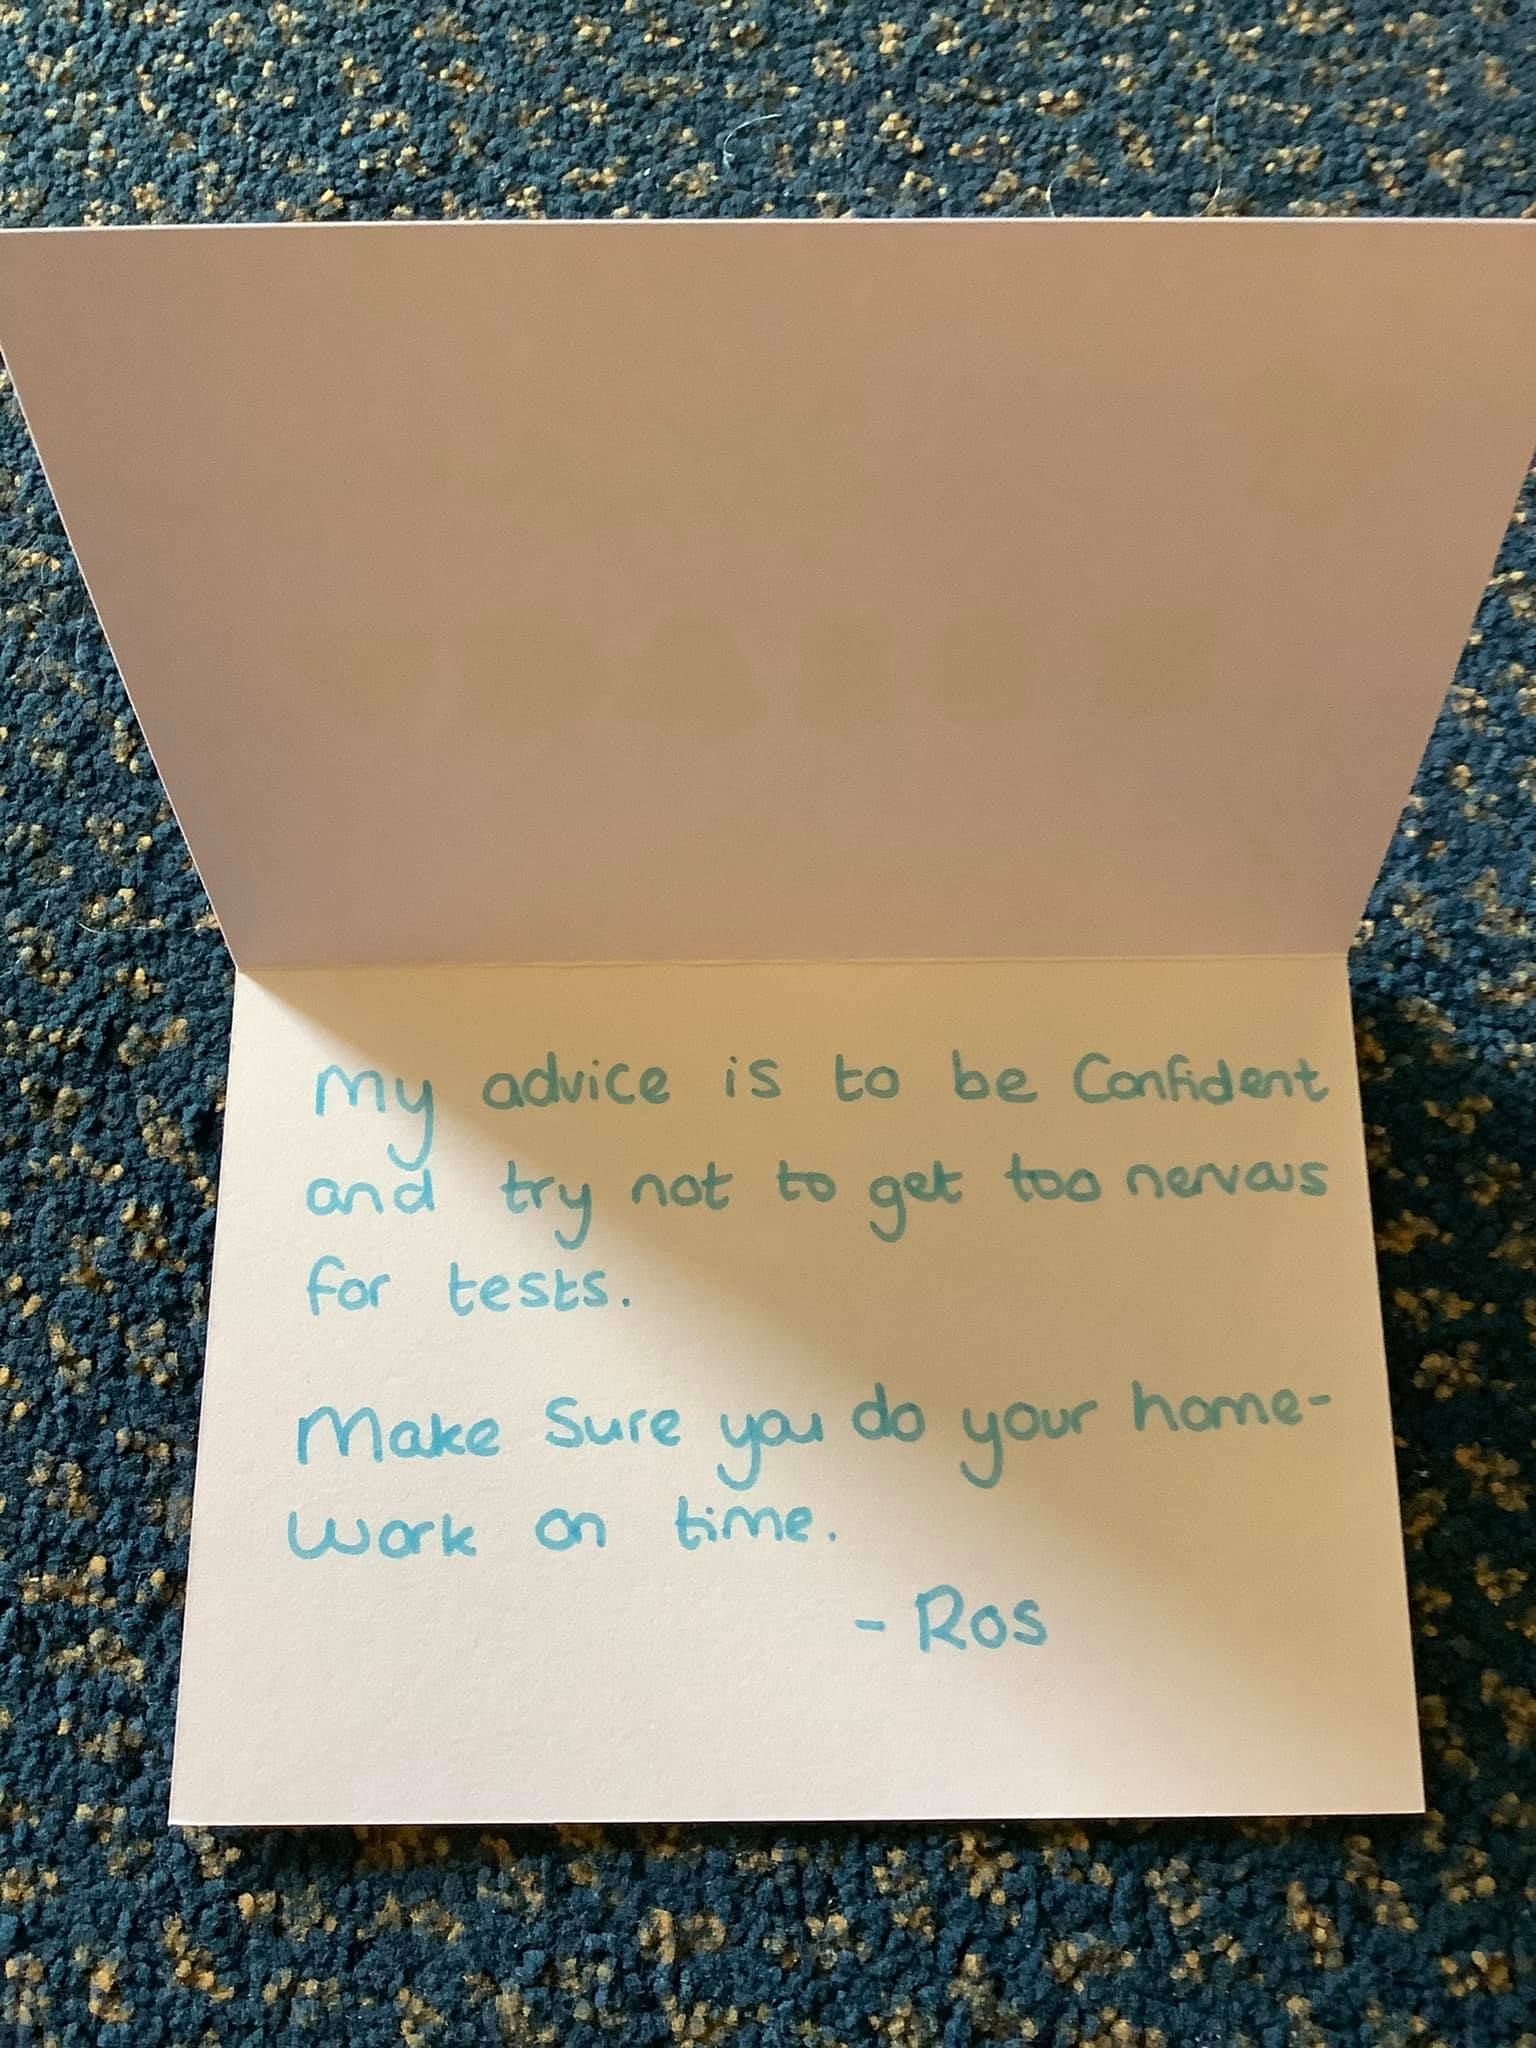 My advice is to be Confident
and try not to get too nervous
for tests.
Make Sure you do your home-
work on time.
- Ros